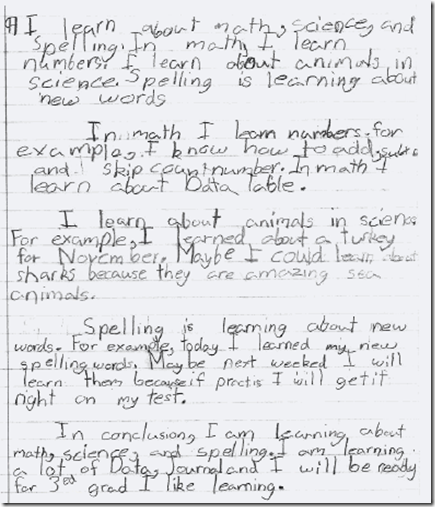 ¶ I learn about math, science, and
spelling. In math, I learn
numbers. I learn about animals in
science. Spelling is learning about
new words

In math I learn numbers. for
example, I know how to add, subtra
and I skip count number. In math I
learn about Data Table.

I learn about animals in science.
For example, I learned about a turkey
for November. Maybe I could learn about
sharks because they are amazing sea
animals.

Spelling is learning about new
words. For example, today I learned my new
spelling words. May be next weeked I will
learn them because if practis I will get it
right on my test.

In conclusion, I am learning about
math, science, and spelling. I am learning
a lot of Data, Journal and I will be ready
for 3rd grad I like learning.